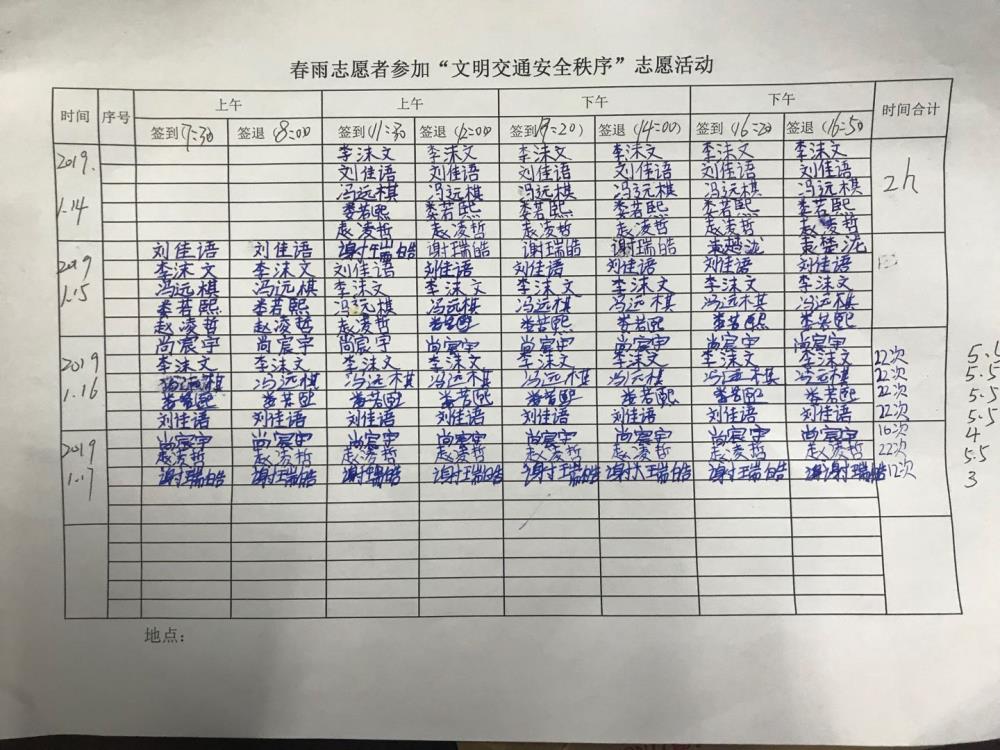 春雨志愿者参加“文明交通安全秩序”志愿活动
时间 序号 上午 上午 下午 下午 时间合计
签到(7:30) 签退(8:00) 签到(11:30) 签退(12:00) 签到(13:20) 签退(14:00) 签到(16:20) 签退(16:50)
2019. 李沫文 李沫文 李沫文 李沫文 李沫文 李沫文
刘佳语 刘佳语 刘佳语 刘佳语 刘佳语 刘佳语
冯远棋 冯远棋 冯远棋 冯远棋 冯远棋 冯远棋 2h
1.14 娄若熙 娄若熙 娄若熙 娄若熙 娄若熙 娄若熙
赵凌哲 赵凌哲 赵凌哲 赵凌哲 赵凌哲 赵凌哲
刘佳语 刘佳语 谢瑞皓 谢瑞皓 谢瑞皓 谢瑞皓
2019 李沫文 李沫文 刘佳语 刘佳语 刘佳语 刘佳语 刘佳语 刘佳语
1.15 冯远棋 冯远棋 李沫文 李沫文 李沫文 李沫文 李沫文 李沫文
娄若熙 娄若熙 冯远棋 冯远棋 冯远棋 冯远棋 冯远棋 冯远棋
赵凌哲 赵凌哲 赵凌哲 娄若熙 娄若熙 娄若熙 娄若熙 娄若熙
尚宸宇 尚宸宇 尚宸宇 尚宸宇 尚宸宇 尚宸宇 尚宸宇 尚宸宇
2019 李沫文 李沫文 李沫文 李沫文 李沫文 李沫文 李沫文 李沫文 22次 5.5
冯远棋 冯远棋 冯远棋 冯远棋 冯远棋 冯远棋 冯远棋 冯远棋 22次 5.5
1.16 娄若熙 娄若熙 娄若熙 娄若熙 娄若熙 娄若熙 娄若熙 娄若熙 22次 5.5
刘佳语 刘佳语 刘佳语 刘佳语 刘佳语 刘佳语 刘佳语 刘佳语 22次 5.5
尚宸宇 尚宸宇 尚宸宇 尚宸宇 尚宸宇 尚宸宇 尚宸宇 尚宸宇 16次 4
2019 赵凌哲 赵凌哲 赵凌哲 赵凌哲 赵凌哲 赵凌哲 赵凌哲 赵凌哲 22次 5.5
1.17 谢瑞皓 谢瑞皓 谢瑞皓 谢瑞皓 谢瑞皓 谢瑞皓 谢瑞皓 谢瑞皓 12次 3
地点：